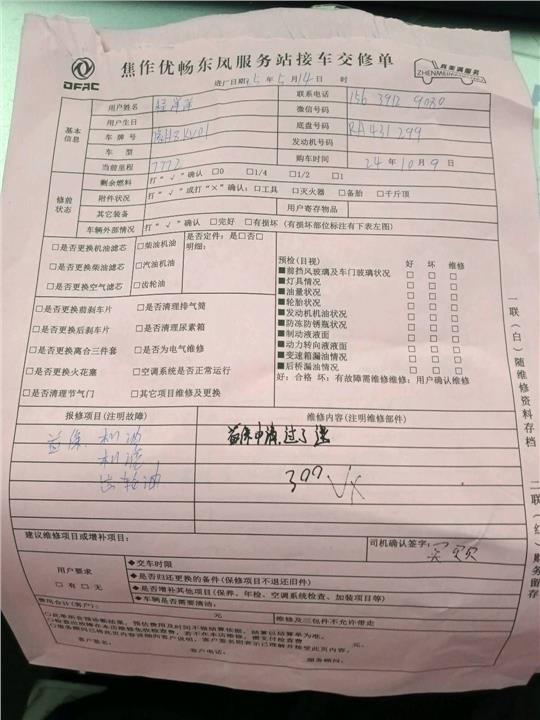 DFAC
焦作优畅东风服务站接车交修单
真美满服务
ZHENMEI
进厂日期: 5 年 5 月 14 日 时
基本信息
用户姓名 程洋洋
联系电话 156 3912 9030
用户生日
微信号码
车牌号
底盘号码 RA431299
车型
发动机号码
当前里程 7772
购车时间 24 年 10 月 9 日
修前状态
剩余燃料 打“√”确认 □0 □1/4 □1/2 □1
附件状况 打“√”或打“×”确认: □工具 □灭火器 □备胎 □千斤顶
其它装备 用户寄存物品
车辆外部情况 打“√”确认 □完好 □有损坏 (有损坏部位标注有下表左图)
□是否更换机油滤芯 □柴油机油 是否定件: 是□否□
□是否更换柴油滤芯 □汽油机油 明细:
□是否更换空气滤芯 □齿轮油
□是否更换前刹车片 □是否清理排气筒
□是否更换后刹车片 □是否清理尿素箱
□是否更换离合三件套 □是否为电气维修
□是否更换火花塞 □空调系统是否正常运行
□是否清理节气门 □其它项目维修及更换
预检(目视) 好 坏 维修
■前挡风玻璃及车门玻璃状况 □ □ □
■灯具情况 □ □ □
■油量状况 □ □ □
■轮胎状况 □ □ □
■发动机机油状况 □ □ □
■防冻防锈瓶状况 □ □ □
■制动液液面 □ □ □
■动力转向液液面 □ □ □
■变速箱漏油情况 □ □ □
■后桥漏油情况 □ □ □
好: 合格 坏: 有故障需维修维修: 用户确认维修
报修项目(注明故障) 维修内容(注明维修部件)
首保: 机油
机滤
齿轮油
首保申请, 过了
300
建议维修项目或增补项目:
司机确认签字:
用户要求
□有 □无
◆交车时限
◆是否归还更换的备件(保修项目不退还旧件)
◆是否增补其他项目(保养、年检、空调系统检查、加装项目等)
◆车辆是否需要清洁:
费用合计(客户): 元 维修及三包件不允许带走
客户签名:
客户电话: 服务顾问:
一联(白)随维修资料存档
二联(红)财务留存